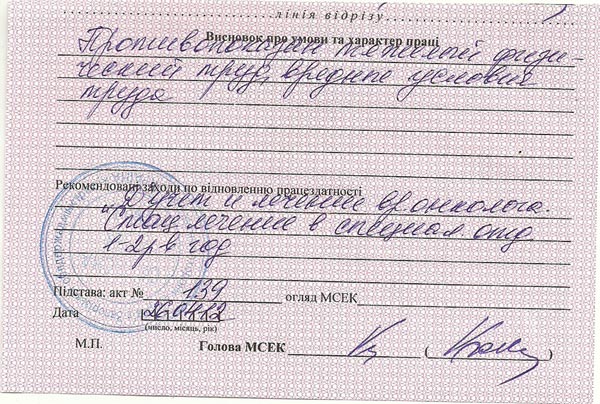 лінія відрізу
Висновок про умови та характер праці
Противопоказан тяжелый физи-
ческий труд, вредные условия
труда
Рекомендовані заходи по відновленню працездатності
"Д" учет и лечение вр онколога.
Стац лечение в специал отд
1-2р в год
Підстава: акт № 139 огляд МСЕК
Дата 26 04 12
(число, місяць, рік)
М.П. Голова МСЕК ( )